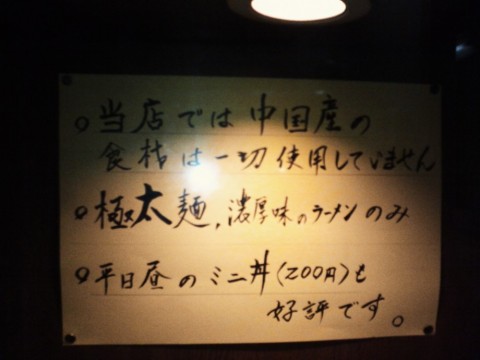 ○当店では中国産の
食材は一切使用していません
○極太麺,濃厚味のラーメンのみ
○平日昼のミニ丼(200円)も
好評です。